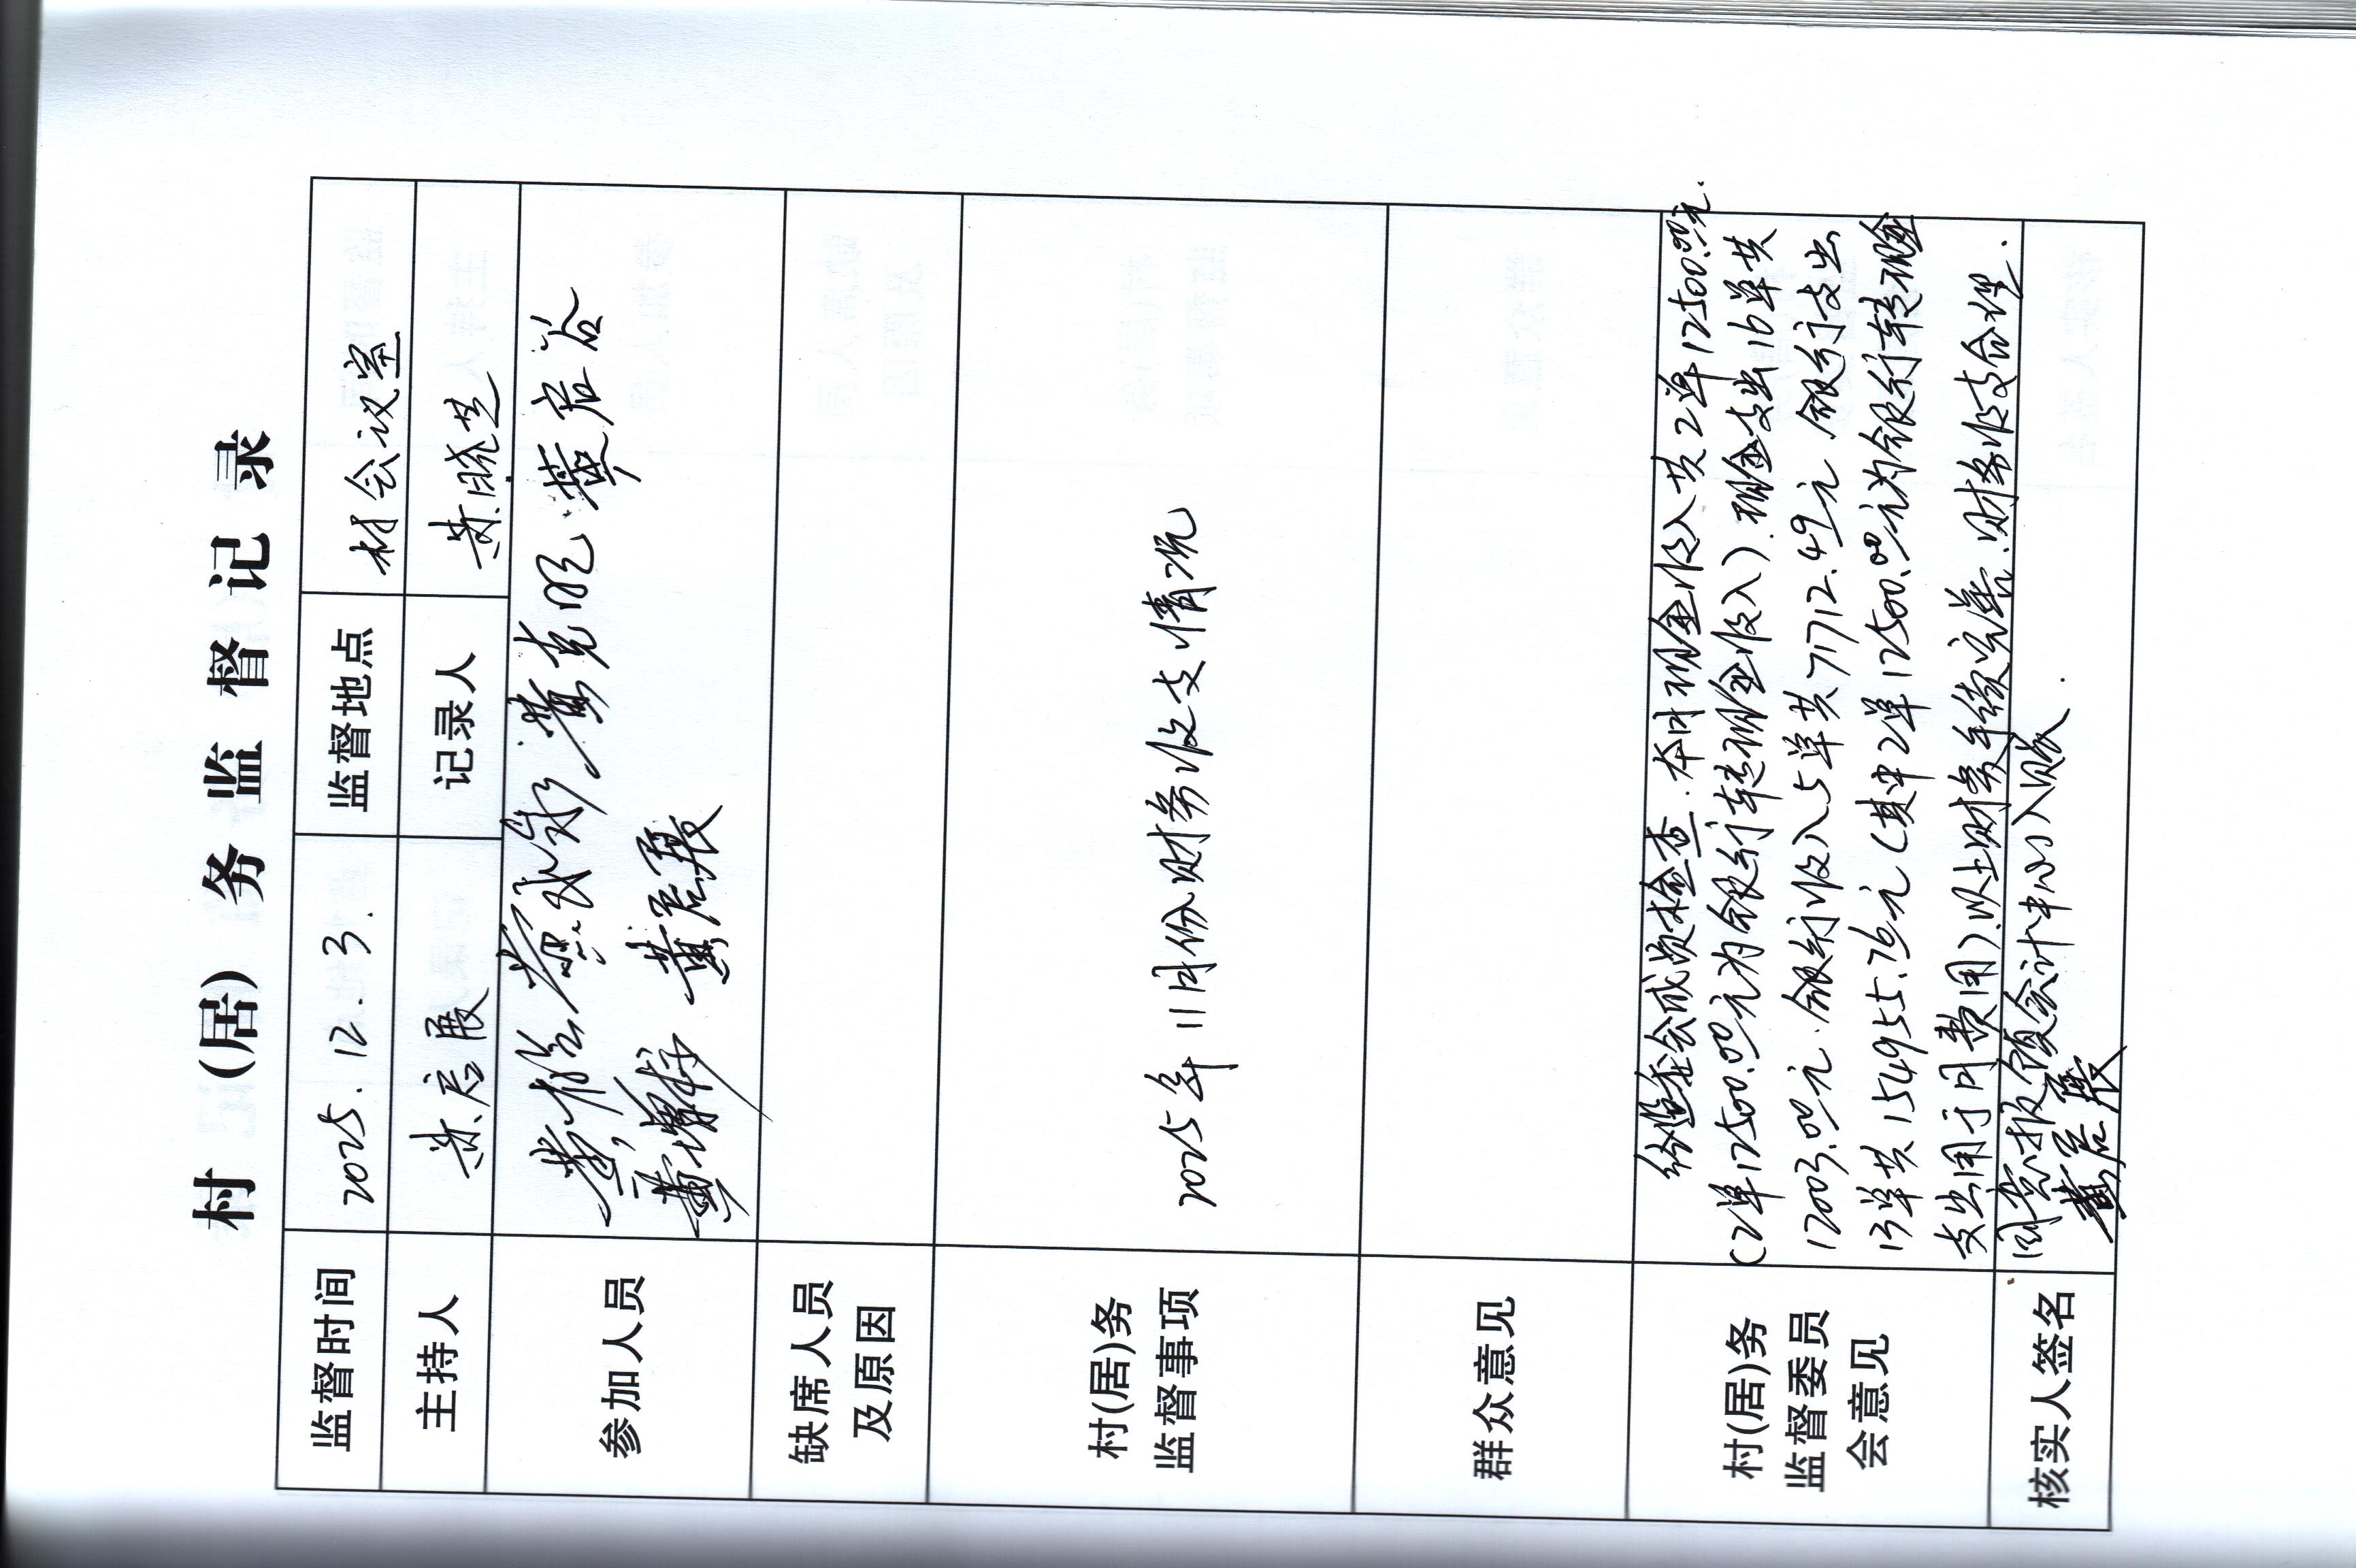 村(居)务监督记录
监督时间 2025.12.3. 监督地点 村会议室
主持人 黄启展 记录人 黄晓芝
参加人员 黄启谷
黄启展
缺席人员
及原因
村(居)务
监督事项 2025年11月份财务收支情况
群众意见
村(居)务
监督委员
会意见
经监委会成员检查.本月现金收入共2单17500.00元.
(2单17500.00元为银行转现金收入).现金支出16单共
17003.00元.银行收入5单共77712.49元.银行支出
13单共154955.76元(其中2单17500.00元为银行转现金
支出用于日费用).以上财务手续完善.财务收支合理.
同意报镇会计中心入账.
核实人签名 黄启展